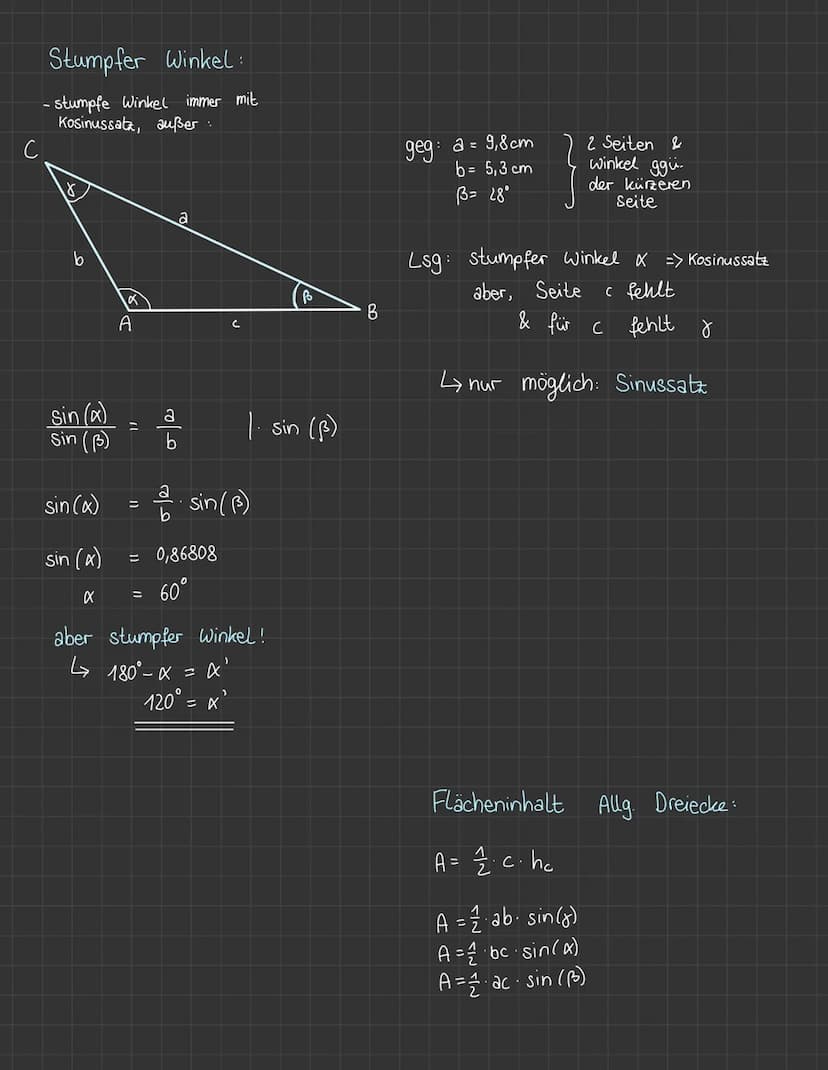 Stumpfer Winkel:
- stumpfe Winkel immer mit
Kosinussatz, außer :
C
γ
a
b
α
β
A
c
B
geg: a = 9,8cm
b = 5,3 cm
β = 28°
2 Seiten &
Winkel ggü.
der kürzeren
Seite
Lsg: stumpfer Winkel α => Kosinussatz
aber, Seite c fehlt
& für c fehlt γ
↳ nur möglich: Sinussatz
sin(α)/sin(β) = a/b |· sin (β)
sin(α) = a/b · sin(β)
sin (α) = 0,86808
α = 60°
aber stumpfer Winkel!
↳ 180° - α = α'
120° = α'
Flächeninhalt Allg. Dreiecke:
A = 1/2 · c · hc
A = 1/2 · ab · sin(γ)
A = 1/2 · bc · sin(α)
A = 1/2 · ac · sin(β)